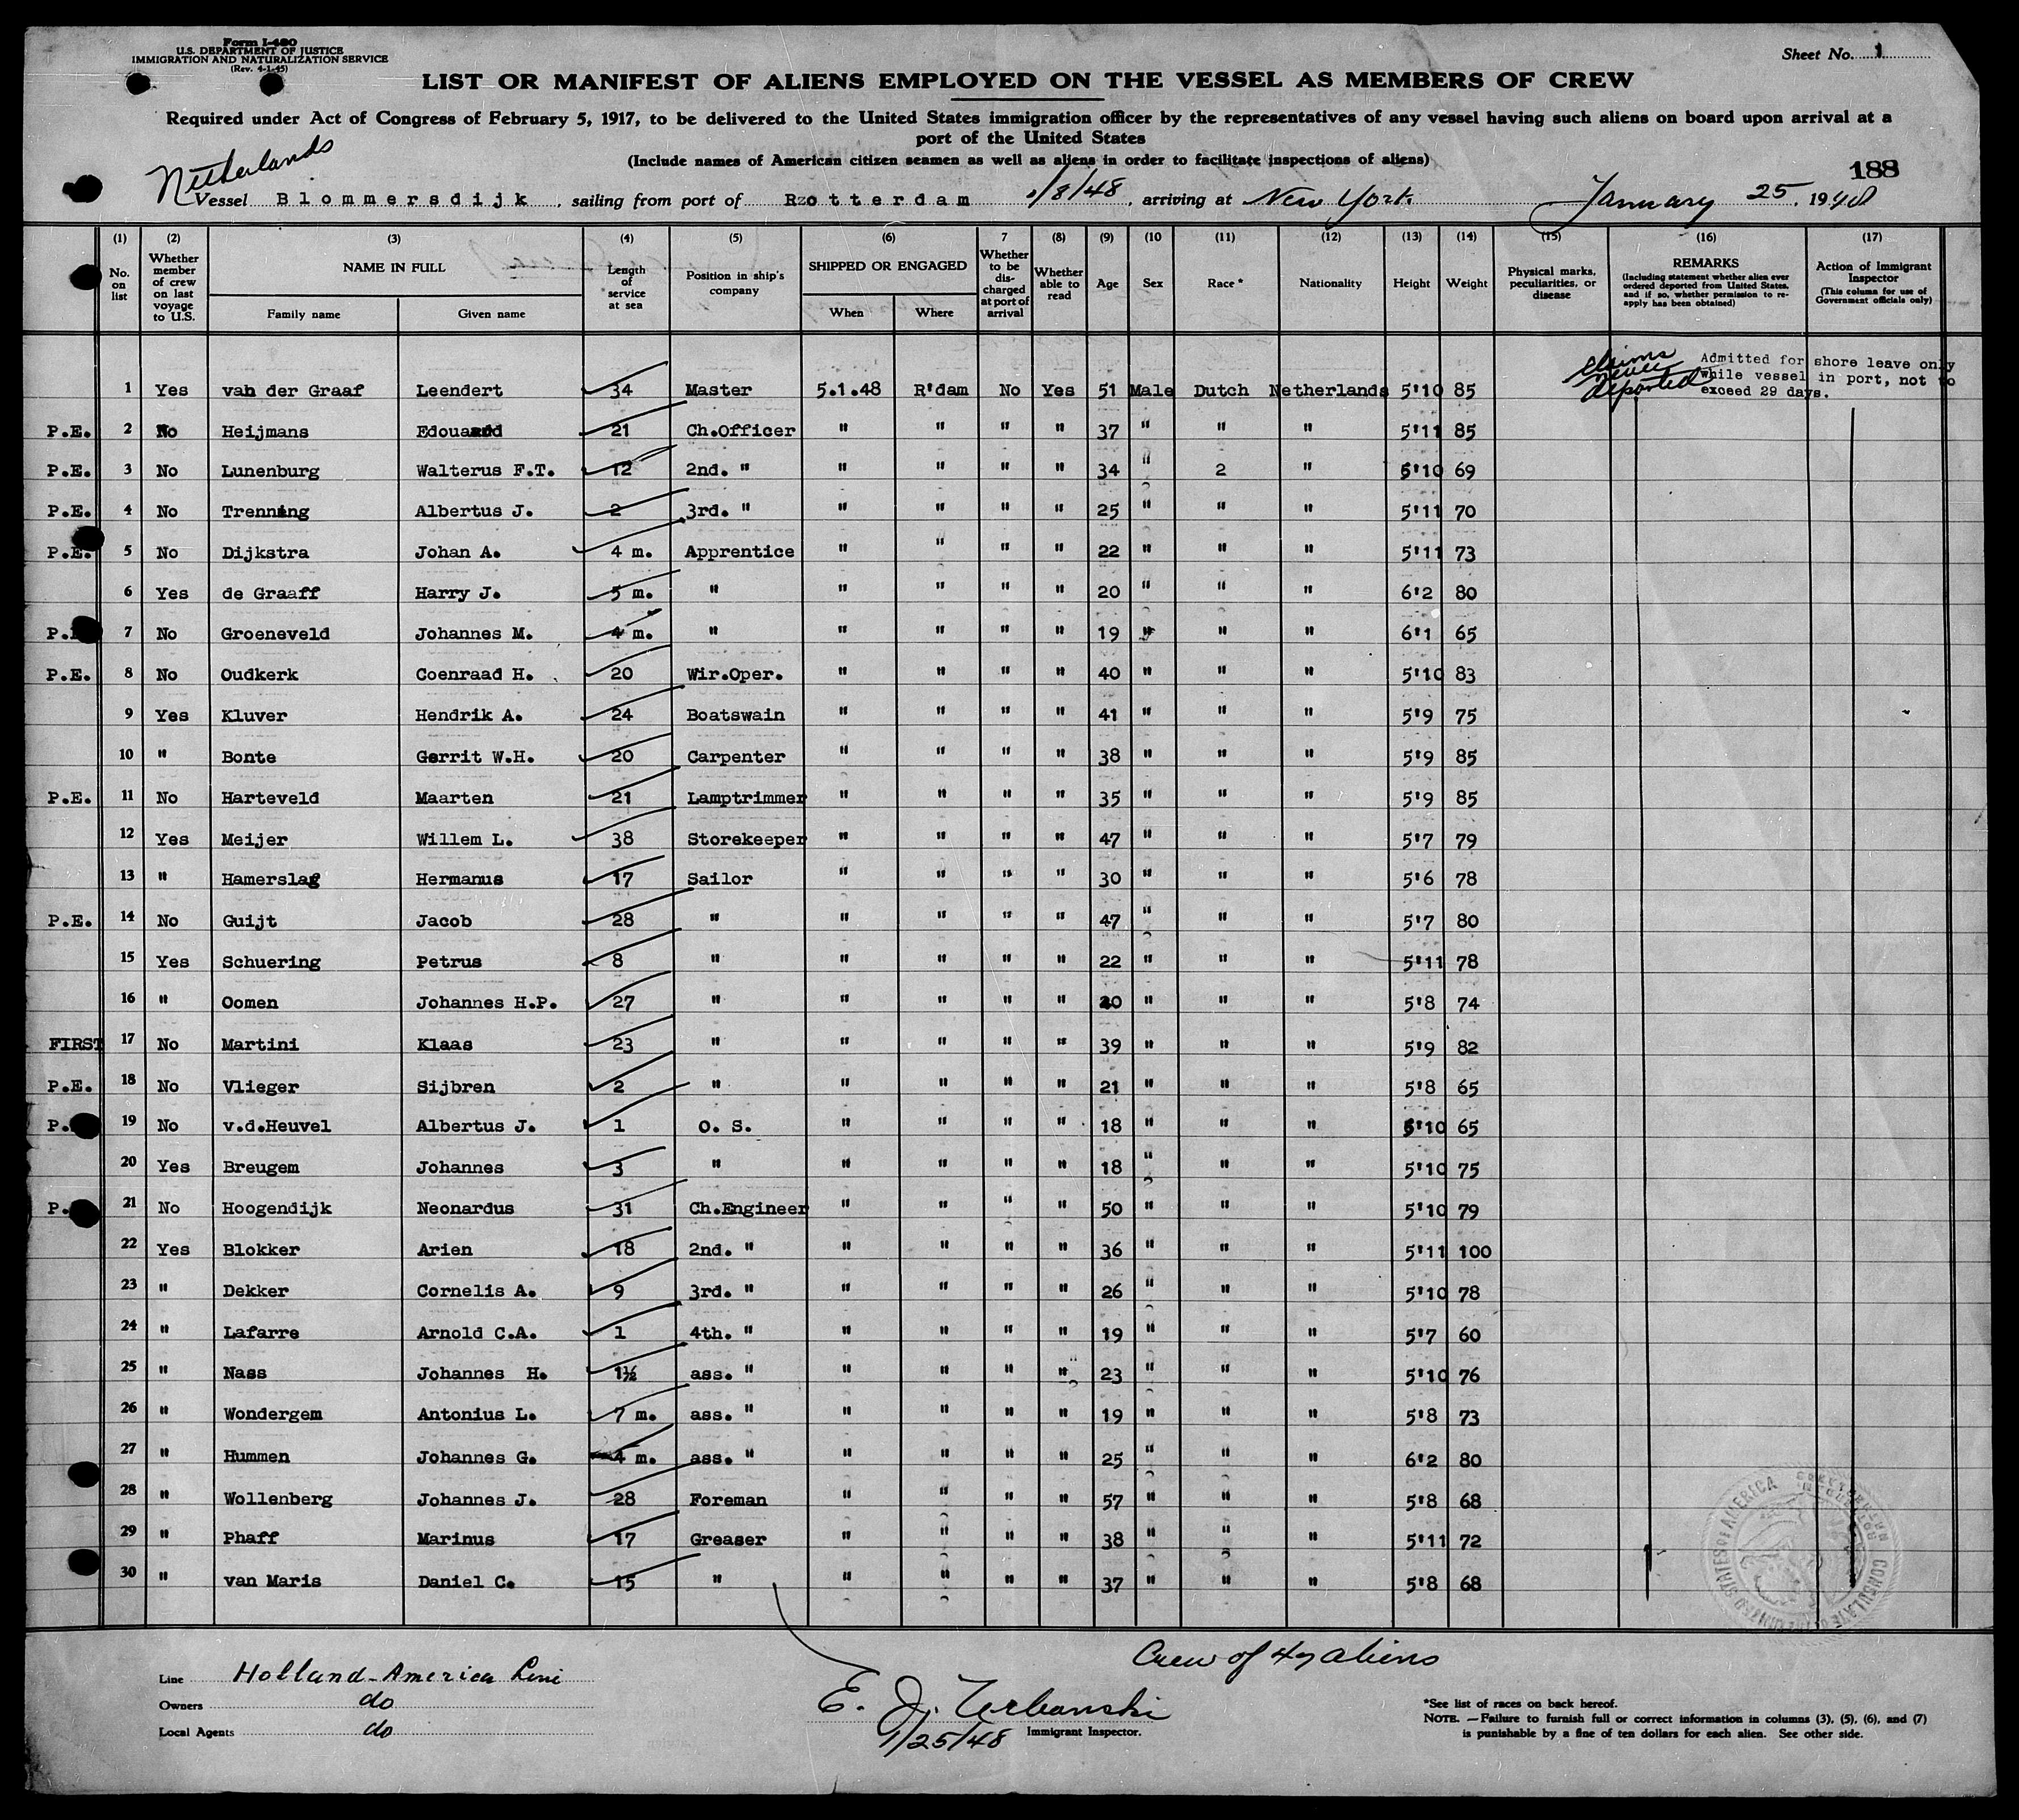 Form I-480
U.S. DEPARTMENT OF JUSTICE
IMMIGRATION AND NATURALIZATION SERVICE
(Rev. 4-1-45)
Sheet No. 1
LIST OR MANIFEST OF ALIENS EMPLOYED ON THE VESSEL AS MEMBERS OF CREW
Required under Act of Congress of February 5, 1917, to be delivered to the United States immigration officer by the representatives of any vessel having such aliens on board upon arrival at a
port of the United States
(Include names of American citizen seamen as well as aliens in order to facilitate inspections of aliens)
188
Netherlands
Vessel Blommersdijk, sailing from port of Rzotterdam 1/8/48, arriving at New York. January 25, 1948
(1) (2) (3) (4) (5) (6) 7 (8) (9) (10 (11) (12) (13) (14) (15) (16) (17)
No. on list
Whether member of crew on last voyage to U.S.
NAME IN FULL
Family name Given name
Length of service at sea
Position in ship's company
SHIPPED OR ENGAGED
When Where
Whether to be discharged at port of arrival
Whether able to read
Age Sex Race * Nationality Height Weight
Physical marks, peculiarities, or disease
REMARKS
(Including statement whether alien ever ordered deported from United States, and if so, whether permission to re-apply has been obtained)
Action of Immigrant Inspector
(This column for use of Government officials only)
claims never deported
Admitted for shore leave only
while vessel in port, not to
exceed 29 days.
1 Yes van der Graaf Leendert 34 Master 5.1.48 R'dam No Yes 51 Male Dutch Netherlands 5'10 85
P.E. 2 No Heijmans Edouard 21 Ch.Officer " " " " 37 " " " 5'11 85
P.E. 3 No Lunenburg Walterus F.T. 12 2nd. " " " " " 34 " 2 " 5'10 69
P.E. 4 No Trenning Albertus J. 2 3rd. " " " " " 25 " " " 5'11 70
P.E. 5 No Dijkstra Johan A. 4 m. Apprentice " " " " 22 " " " 5'11 73
6 Yes de Graaff Harry J. 5 m. " " " " " 20 " " " 6'2 80
P. 7 No Groeneveld Johannes M. 4 m. " " " " " 19 " " " 6'1 65
P.E. 8 No Oudkerk Coenraad H. 20 Wir.Oper. " " " " 40 " " " 5'10 83
9 Yes Kluver Hendrik A. 24 Boatswain " " " " 41 " " " 5'9 75
10 " Bonte Gerrit W.H. 20 Carpenter " " " " 38 " " " 5'9 85
P.E. 11 No Harteveld Maarten 21 Lamptrimmer " " " " 35 " " " 5'9 85
12 Yes Meijer Willem L. 38 Storekeeper " " " " 47 " " " 5'7 79
13 " Hamerslag Hermanus 17 Sailor " " " " 30 " " " 5'6 78
P.E. 14 No Guijt Jacob 28 " " " " " 47 " " " 5'7 80
15 Yes Schuering Petrus 8 " " " " " 22 " " " 5'11 78
16 " Oomen Johannes H.P. 27 " " " " " " " " 5'8 74
FIRST 17 No Martini Klaas 23 " " " " " 39 " " " 5'9 82
P.E. 18 No Vlieger Sijbren 2 " " " " " 21 " " " 5'8 65
P. 19 No v.d.Heuvel Albertus J. 1 O. S. " " " " 18 " " " 5'10 65
20 Yes Breugem Johannes 3 " " " " " 18 " " " 5'10 75
P. 21 No Hoogendijk Neonardus 31 Ch.Engineer " " " " 50 " " " 5'10 79
22 Yes Blokker Arien 18 2nd. " " " " " 36 " " " 5'11 100
23 " Dekker Cornelis A. 9 3rd. " " " " " 26 " " " 5'10 78
24 " Lafarre Arnold C.A. 1 4th. " " " " " 19 " " " 5'7 60
25 " Nass Johannes H. 1½ ass. " " " " " 23 " " " 5'10 76
26 " Wondergem Antonius L. 7 m. ass. " " " " " 19 " " " 5'8 73
27 " Hummen Johannes G. 4 m. ass. " " " " " 25 " " " 6'2 80
28 " Wollenberg Johannes J. 28 Foreman " " " " 57 " " " 5'8 68
29 " Phaff Marinus 17 Greaser " " " " 38 " " " 5'11 72
30 " van Maris Daniel C. 15 " " " " " 37 " " " 5'8 68
Crew of 47 aliens
Line Holland-America Line
Owners do
Local Agents do
E. J. Urbanski
1/25/48 Immigrant Inspector.
*See list of races on back hereof.
NOTE.—Failure to furnish full or correct information in columns (3), (5), (6), and (7)
is punishable by a fine of ten dollars for each alien. See other side.